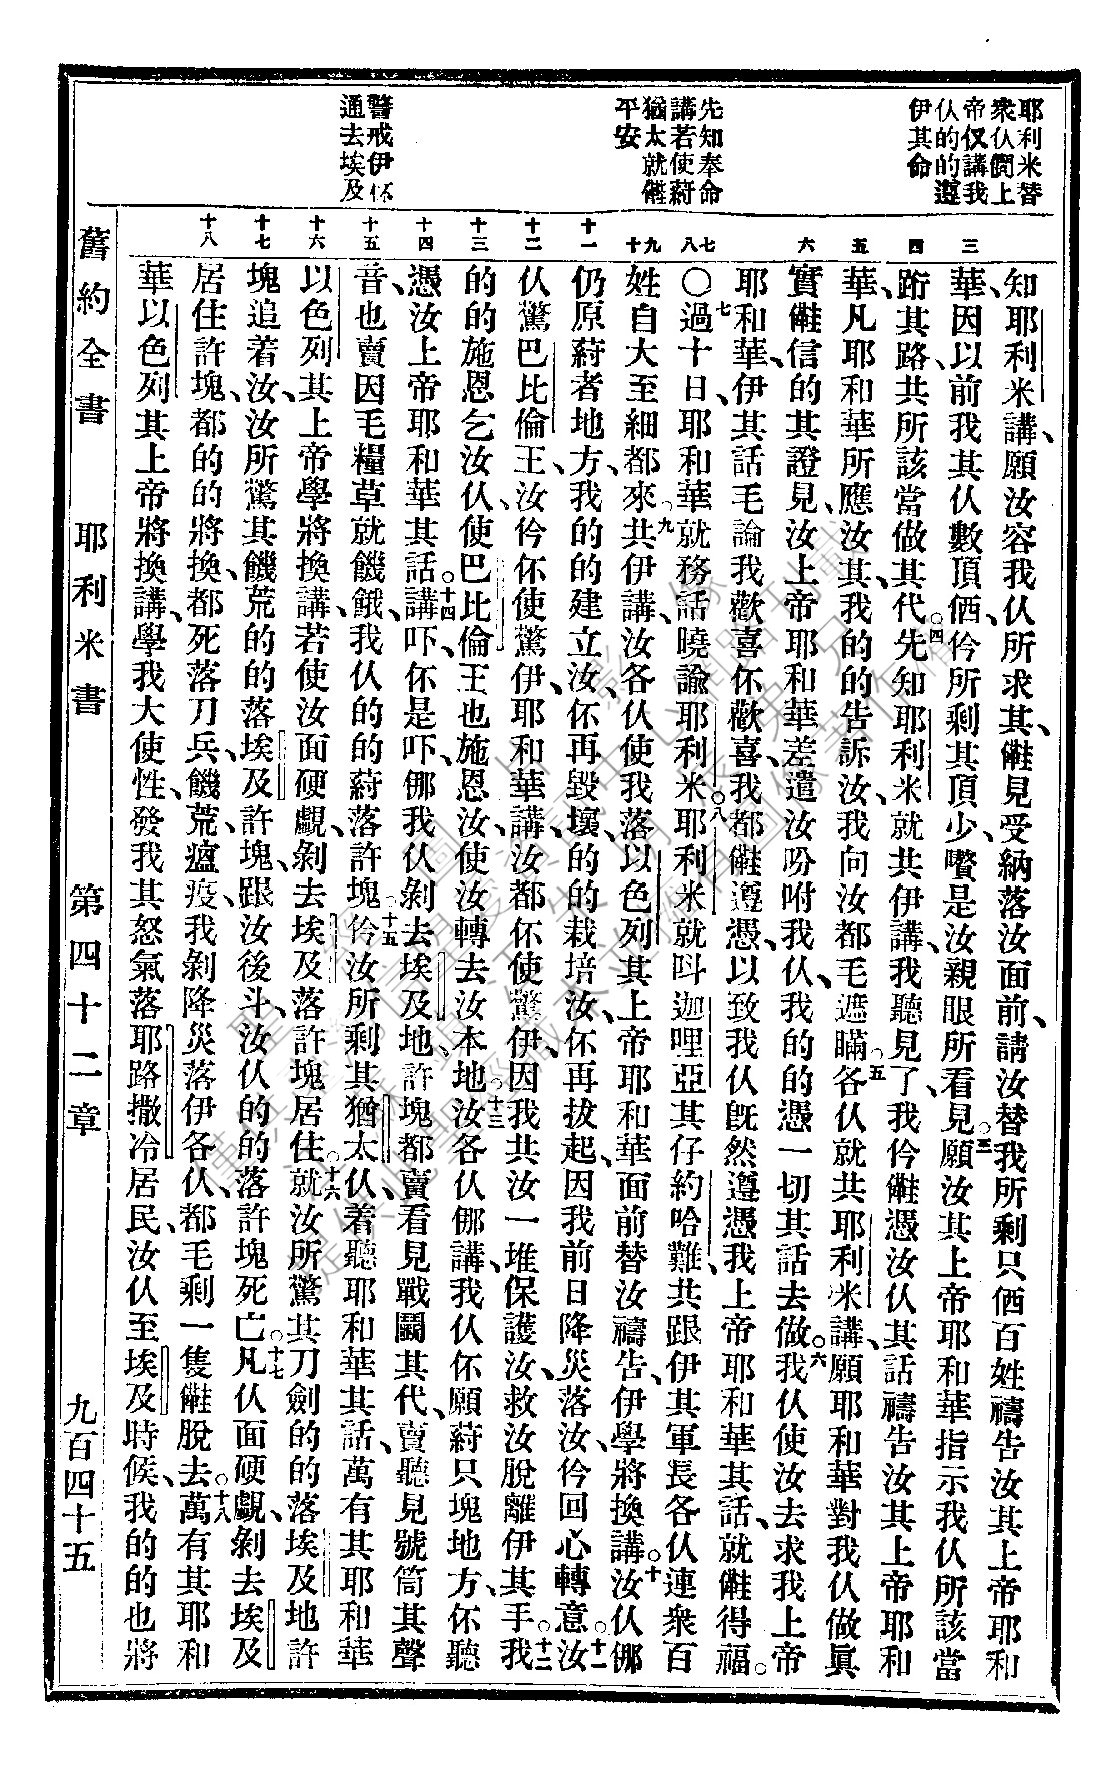 耶利米替
衆仈閧上
帝仅講我
仈的的遵
伊其命
先知奉命
講若使蔚
猶太就㑆
平安
警戒伊伓
通去埃及
三
四
五
六
七
八
九
十
十一
十二
十三
十四
十五
十六
十七
十八
知耶利米講、願汝容我仈所求其、㑆見受納落汝面前、請汝替我所剩只㑑百姓禱告汝其上帝耶和
華、因以前我其仈數頂㑑、仱所剩其頂少、㘔是汝親眼所看見。三願汝其上帝耶和華指示我仈所該當
跱其路、共所該當做其代。四先知耶利米就共伊講、我聽見了、我仱㑆憑汝仈其話、禱告汝其上帝耶和
華、凡耶和華所應汝其、我的的告訴汝、我向汝都毛遮瞞。五各仈就共耶利米講、願耶和華對我仈做眞
實㑆信的其證見、汝上帝耶和華差遣汝吩咐我仈、我的的憑一切其話去做。六我仈使汝去求我上帝
耶和華、伊其話毛論我歡喜伓歡喜、我都㑆遵憑、以致我仈旣然遵憑我上帝耶和華其話、就㑆得福。
〇七過十日、耶和華就務話曉諭耶利米。八耶利米就呌迦哩亞其仔約哈難、共跟伊其軍長各仈、連衆百
姓自大至細都來、九共伊講、汝各仈使我落以色列其上帝耶和華面前替汝禱告、伊學將換講。十汝仈㑚
仍原蔚者地方、我的的建立汝、伓再毀壞、的的栽培汝、伓再拔起、因我前日降災落汝、仱回心轉意。十一汝
仈驚巴比倫王、汝仱伓使驚伊、耶和華講、汝都伓使驚伊、因我共汝一堆、保護汝、救汝脫離伊其手。十二我
的的施恩乞汝仈、使巴比倫王也施恩汝、使汝轉去汝本地。十三汝各仈㑚講、我仈伓願蔚只塊地方、伓聽
憑汝上帝耶和華其話。十四講吓、伓是吓、㑚我仈剝去埃及地、許塊都賣看見戰鬭其代、賣聽見號筒其聲
音、也賣因毛糧草就饑餓、我仈的的蔚落許塊、十五仱汝所剩其猶太仈、着聽耶和華其話、萬有其耶和華
以色列其上帝學將換講、若使汝面硬覷、剝去埃及、落許塊居住。十六就汝所驚其刀劍的的落埃及地許
塊追着汝、汝所驚其饑荒的的落埃及許塊、跟汝後斗、汝仈的的落許塊死亡。十七凡仈面硬覷、剝去埃及
居住許塊、都的的將換、都死落刀兵、饑荒、瘟疫、我剝降災落伊各仈、都毛剩一隻㑆脫去。十八萬有其耶和
華以色列其上帝將換講、學我大使性、發我其怒氣落耶路撒冷居民、汝仈至埃及時候、我的的也將
舊約全書　耶利米書　第四十二章　九百四十五